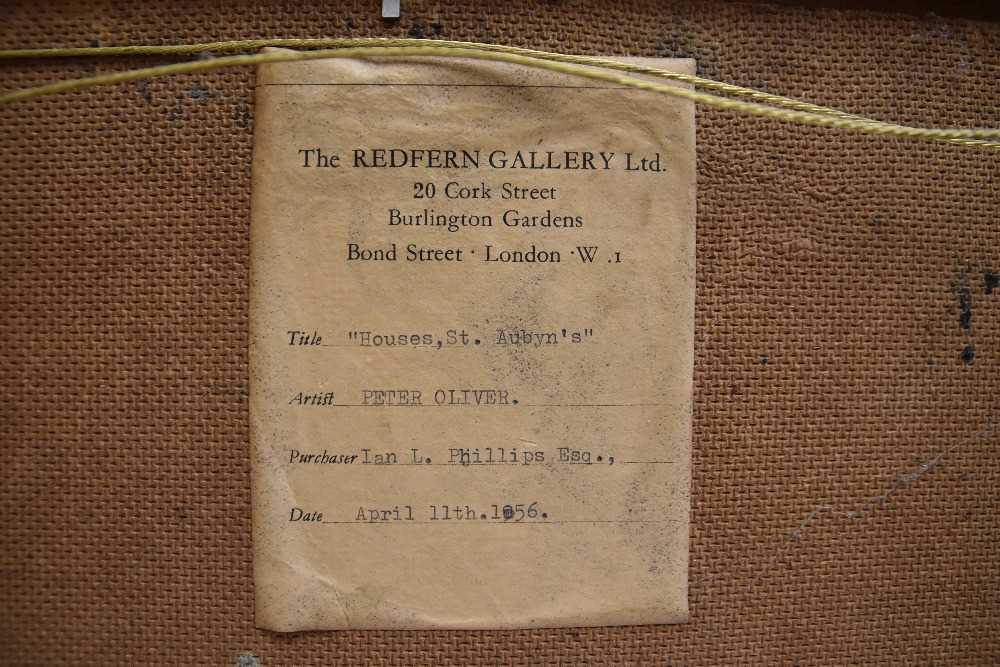 The REDFERN GALLERY Ltd.
20 Cork Street
Burlington Gardens
Bond Street · London · W .1
Title "Houses,St. Aubyn's"
Artist PETER OLIVER.
Purchaser Ian L. Phillips Esq.,
Date April 11th.1956.